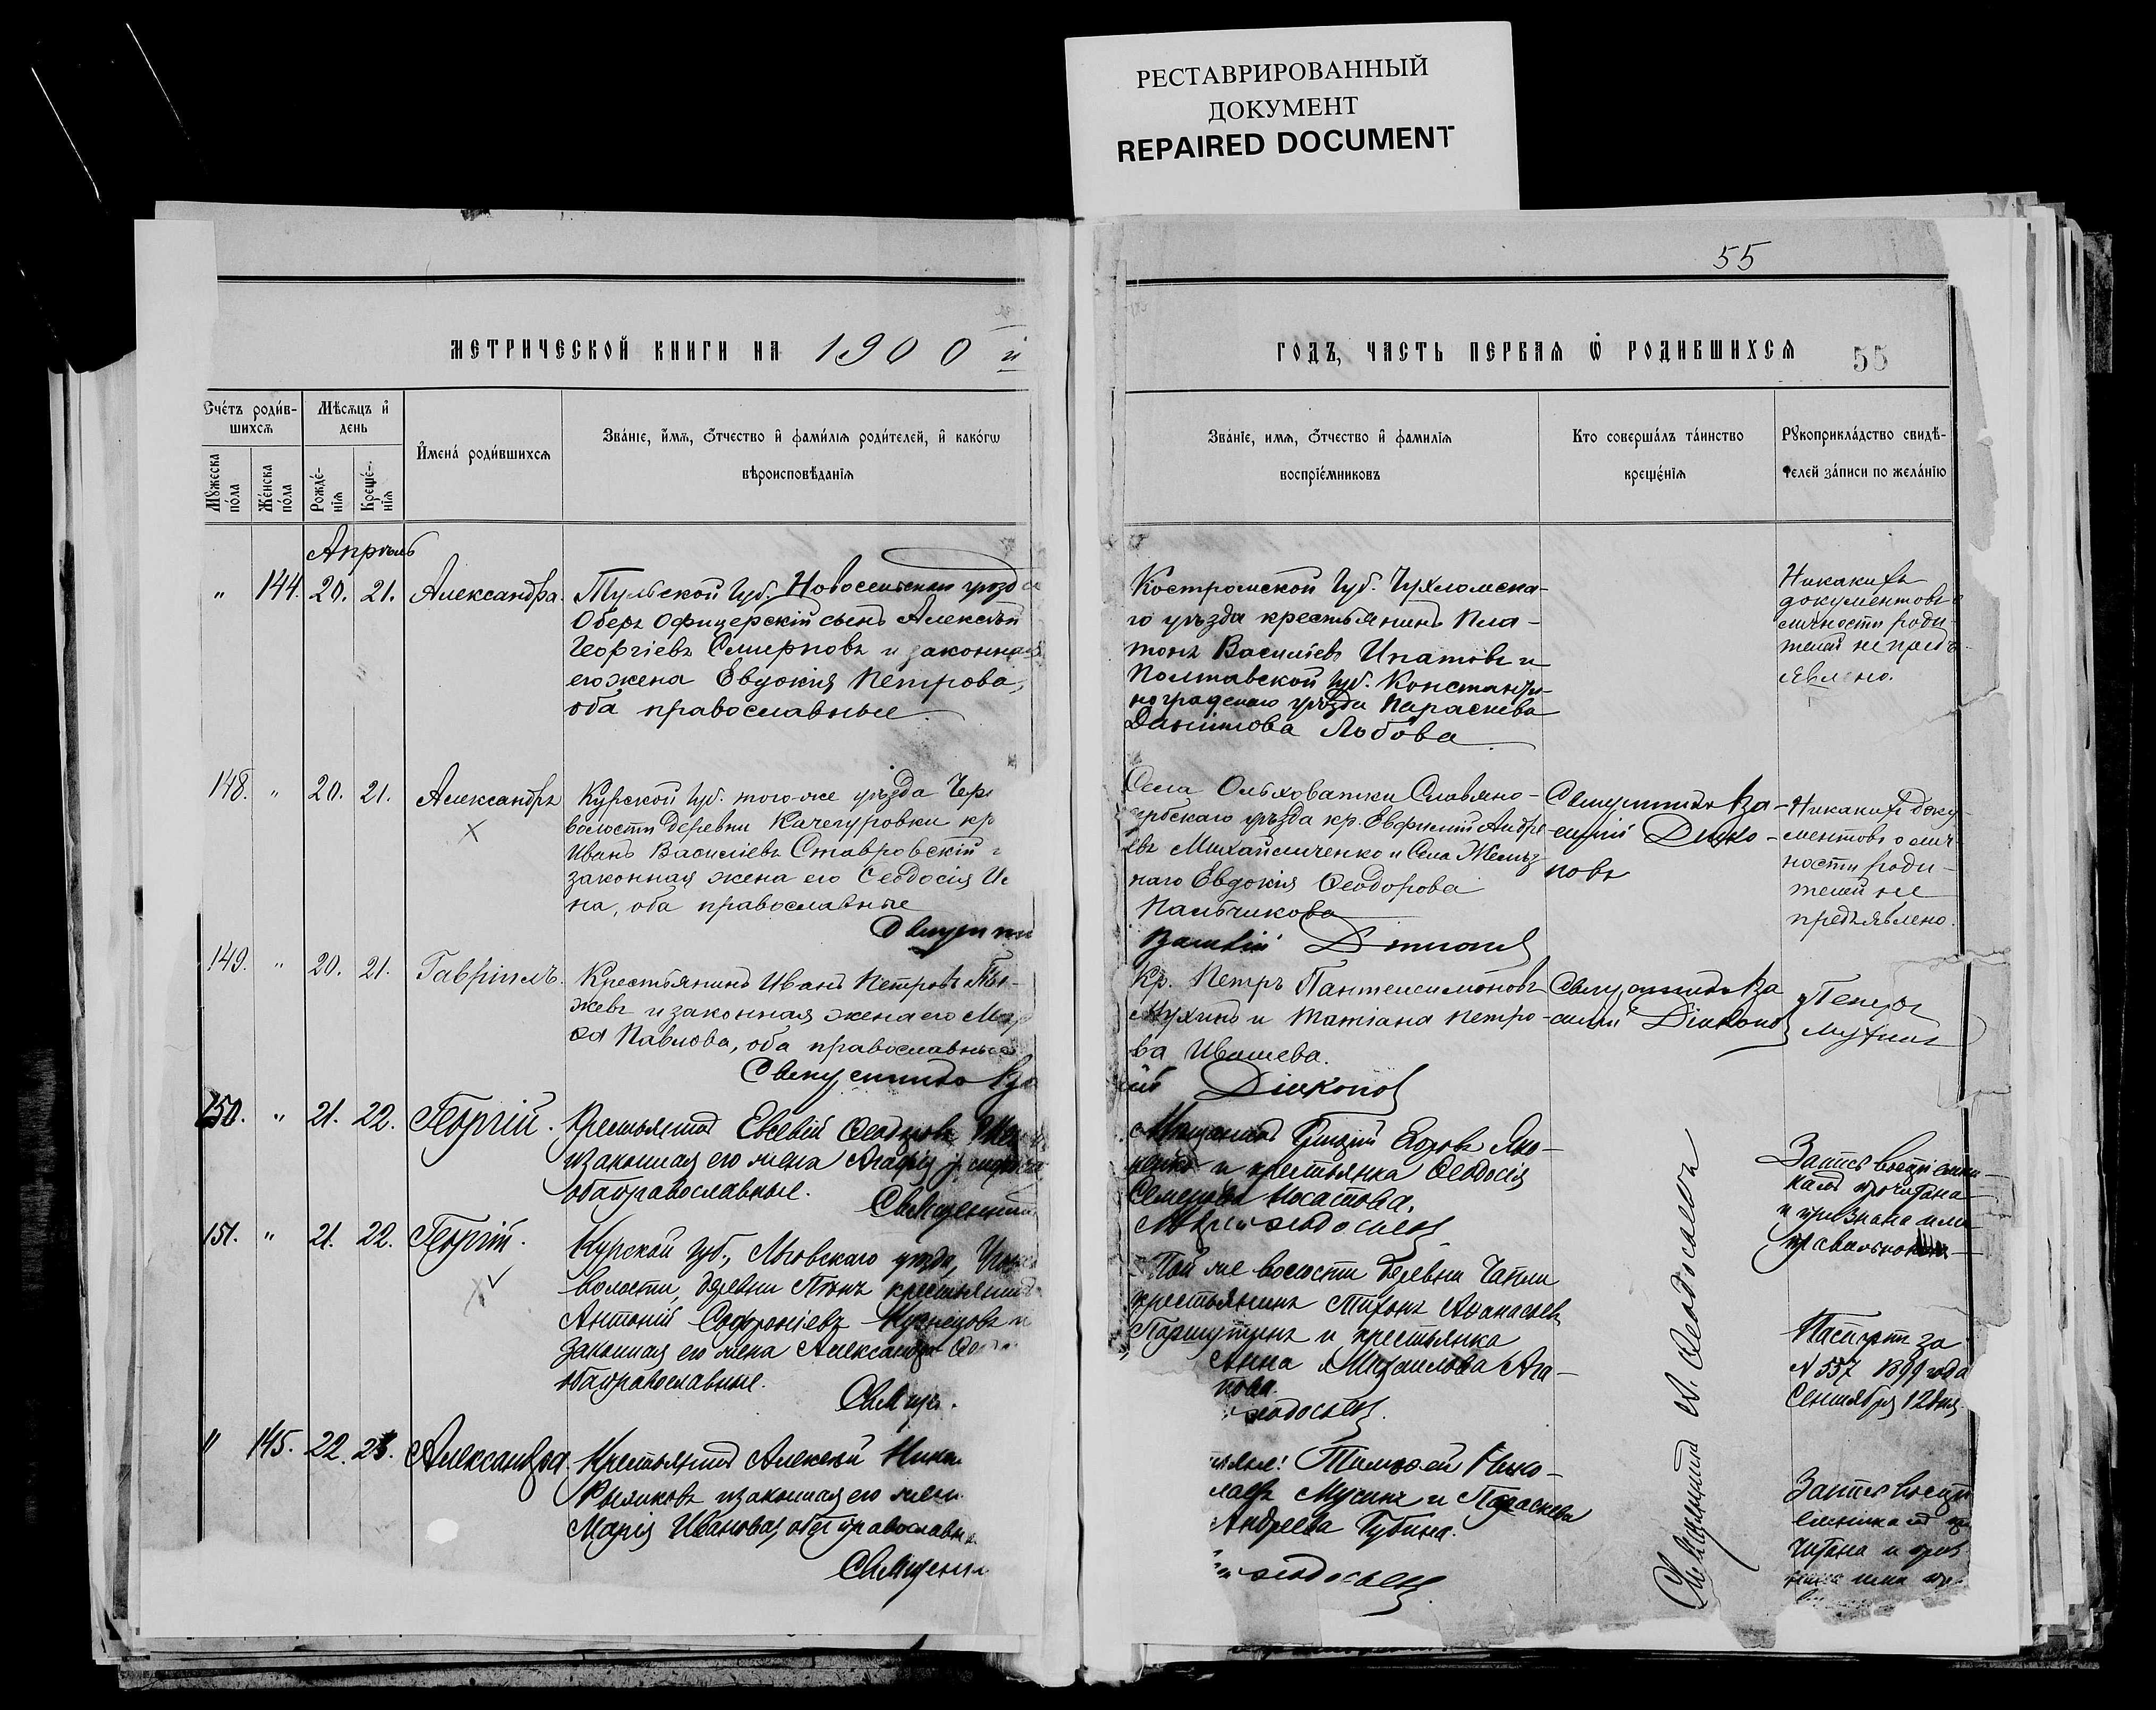 РЕСТАВРИРОВАННЫЙ
ДОКУМЕНТ
REPAIRED DOCUMENT
55
МЕТРИЧЕСКОЙ КНИГИ НА 1900 й
ГОДЪ, ЧАСТЬ ПЕРВАЯ Ѡ РОДИВШИХСЯ
55
Счетъ родив-
шихся
Мѣсяцъ и
день
Имена родившихся
Званіе, имя, отчество и фамилія родителей, и какогѡ
вѣроисповѣданія
Мужеска
пола
Женска
пола
Рожде-
нія
Креще-
нія
Званіе, имя, отчество и фамилія
воспріемниковъ
Кто совершалъ таинство
крещенія
Рукоприкладство свидѣ-
телей записи по желанію
Апрѣль
" 144. 20. 21. Александра.
Тульской Губ. Новосельскаго уѣзда
Оберъ Офицерскій сынъ Алексѣй
Георгіевъ Смирновъ и законная
его жена Евдокія Петрова,
оба православные.
Костромской Губ. Чухломска-
го уѣзда крестьянинъ Пла-
тонъ Васильевъ Ипатовъ и
Полтавской Губ. Константи-
ноградскаго уѣзда Параскева
Даніилова Лобова
Никакихъ
документовъ о
личности роди-
телей не предъ-
явлено.
148. " 20. 21. Александръ
Курской Губ. того-же уѣзда
волости деревни Качегуровки кр
Иванъ Васильевъ Ставровскій
законная жена его Ѳеодосія
на, оба православные
Села Ольховатки Славяно-
сербскаго уѣзда кр. Евфимій Андре-
евъ Михайличенко и Села Желѣз
наго Евдокія Ѳеодорова
Пальчикова
Дьяконовъ
Священникъ Ва-
силій Дьяко-
новъ
Никакихъ доку-
ментовъ о лич-
ности роди-
телей не
предъявлено.
149. " 20. 21. Гавріилъ.
Крестьянинъ Иванъ Петровъ
жевъ и законная жена его
Павлова, оба православные
Священникъ Ва
Кр. Петръ Пантелеимоновъ
Мухинъ и Татіана Петро-
ва Ивашева.
Дьяконовъ
Священникъ Ва
силій Дьяконовъ
Петръ
Мухинъ
150. " 21. 22. Георгій.
Крестьянинъ Евсевій
и законная его жена Агафія
оба православные.
Священникъ
Мѣщанинъ Егоровъ
и крестьянка Ѳеодосія
Семенова Носатова.
Ѳеодосьевъ
Запись воспріемни-
камъ прочитана
и признана ими
правильною
151. " 21. 22. Георгій.
Курской Губ., Льговскаго уѣзда,
волости, деревни крестьянинъ
Антоній Софроніевъ Кузнецовъ и
законная его жена Александра
оба православные.
Той же волости деревни
крестьянинъ Тихонъ Аѳанасьевъ
и крестьянка
Анна Михаилова Ага-
пова.
Ѳеодосьевъ.
Паспортъ за
№ 557 1899 года
Сентября 12 дня.
" 145. 22. 23. Александра
Крестьянинъ Алексѣй
и законная его жена
Марія Иванова, оба православн
Священни
Тимоѳей Нико-
лаевъ Мусинъ и Параскева
Андреева Губина.
Ѳеодосьевъ
Священникъ А. Ѳеодосьевъ
Запись воспрі
емникамъ про
читана и приз
нана ими пра